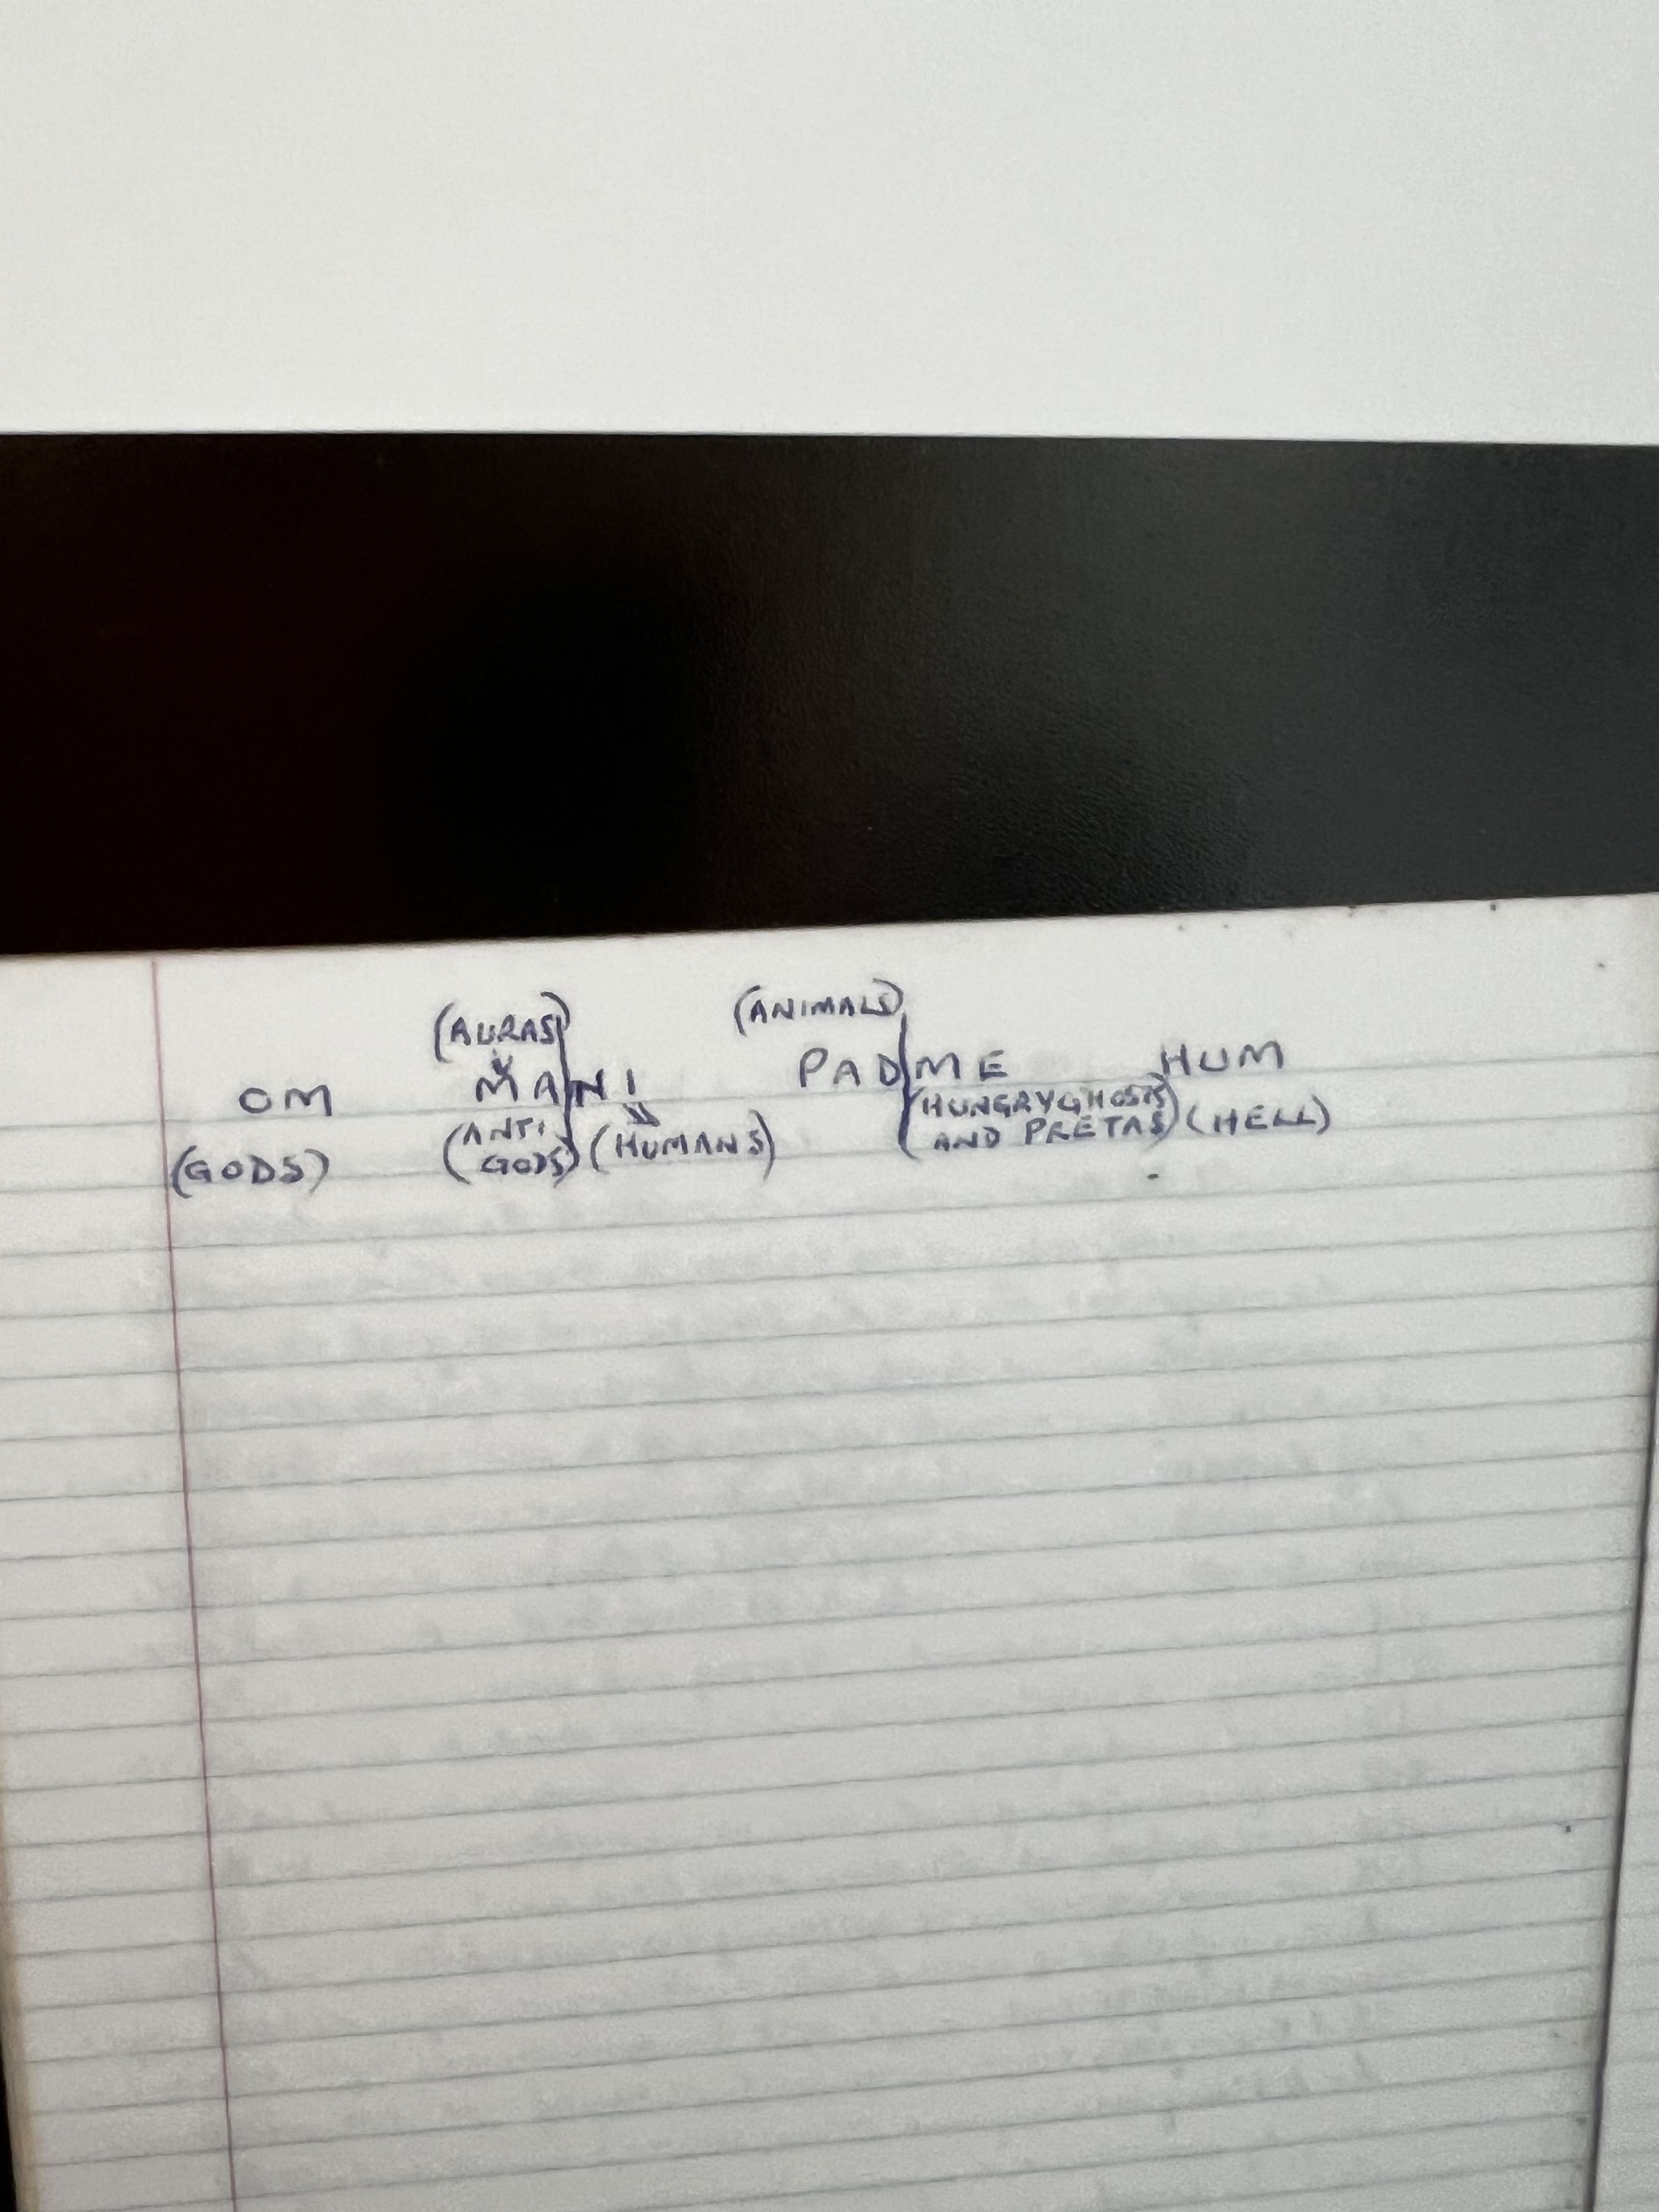 (AURAS) (ANIMALS)
OM MA|NI PAD|ME HUM
(GODS) (ANTI GODS) (HUMANS) (HUNGRY GHOSTS AND PRETAS) (HELL)